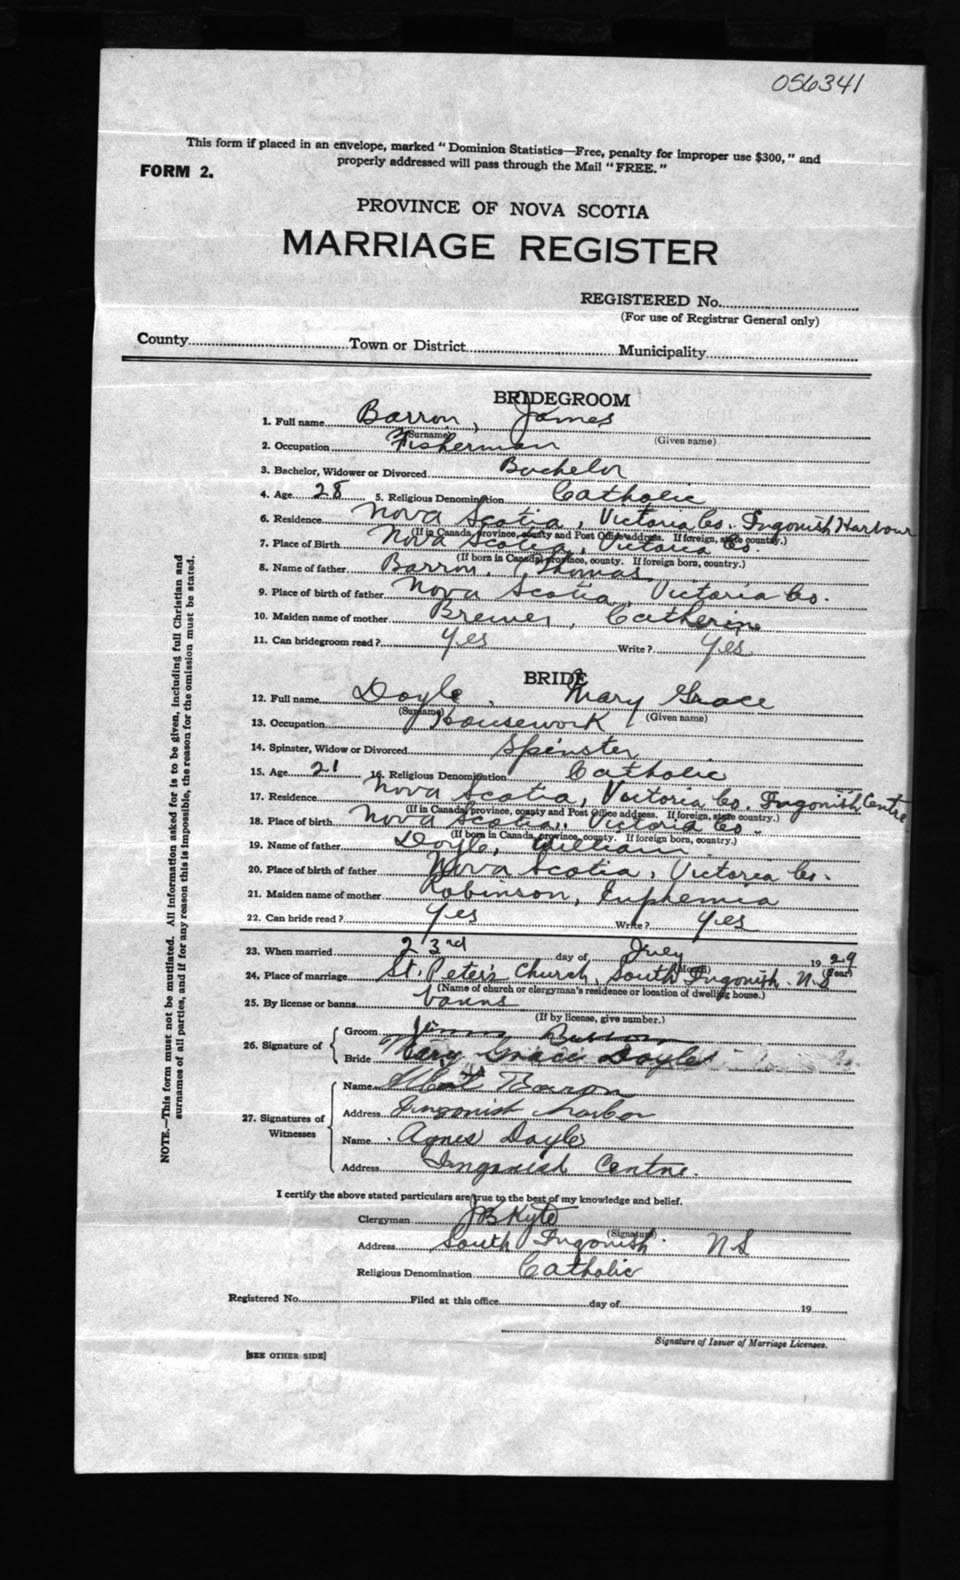 056341
This form if placed in an envelope, marked "Dominion Statistics—Free, penalty for improper use $300," and
properly addressed will pass through the Mail "FREE."
FORM 2.
PROVINCE OF NOVA SCOTIA
MARRIAGE REGISTER
REGISTERED No.
(For use of Registrar General only)
County Town or District Municipality
BRIDEGROOM
1. Full name Barron, James
(Surname) (Given name)
2. Occupation Fisherman
3. Bachelor, Widower or Divorced Bachelor
4. Age 28 5. Religious Denomination Catholic
6. Residence Nova Scotia, Victoria Co. Ingonish Harbour
(If in Canada, province, county and Post Office address. If foreign, state country.)
7. Place of Birth Nova Scotia, Victoria Co.
(If born in Canada, province, county. If foreign born, country.)
8. Name of father Barron, Thomas
9. Place of birth of father Nova Scotia, Victoria Co.
10. Maiden name of mother Brewer, Catherine
11. Can bridegroom read? Yes Write? Yes
BRIDE
12. Full name Doyle, Mary Grace
(Surname) (Given name)
13. Occupation Housework
14. Spinster, Widow or Divorced Spinster
15. Age 21 16. Religious Denomination Catholic
17. Residence Nova Scotia, Victoria Co. Ingonish Centre
(If in Canada, province, county and Post Office address. If foreign, state country.)
18. Place of birth Nova Scotia, Victoria Co.
(If born in Canada, province, county. If foreign born, country.)
19. Name of father Doyle, William
20. Place of birth of father Nova Scotia, Victoria Co.
21. Maiden name of mother Robinson, Euphemia
22. Can bride read? Yes Write? Yes
23. When married 23rd day of July 1929
(Month) (Year)
24. Place of marriage St. Peter's Church, South Ingonish. N.S
(Name of church or clergyman's residence or location of dwelling house.)
25. By license or banns banns
(If by license, give number.)
26. Signature of Groom James Barron
Bride Mary Grace Doyle
27. Signatures of Witnesses
Name Albert Barron
Address Ingonish Harbor
Name Agnes Doyle
Address Ingonish Centre.
I certify the above stated particulars are true to the best of my knowledge and belief.
Clergyman J B Kyte
(Signature)
Address South Ingonish. N S
Religious Denomination Catholic
Registered No. Filed at this office day of 19
Signature of Issuer of Marriage Licenses.
[SEE OTHER SIDE]
NOTE.—This form must not be mutilated. All information asked for is to be given, including full Christian and
surnames of all parties, and if for any reason this is impossible, the reason for the omission must be stated.